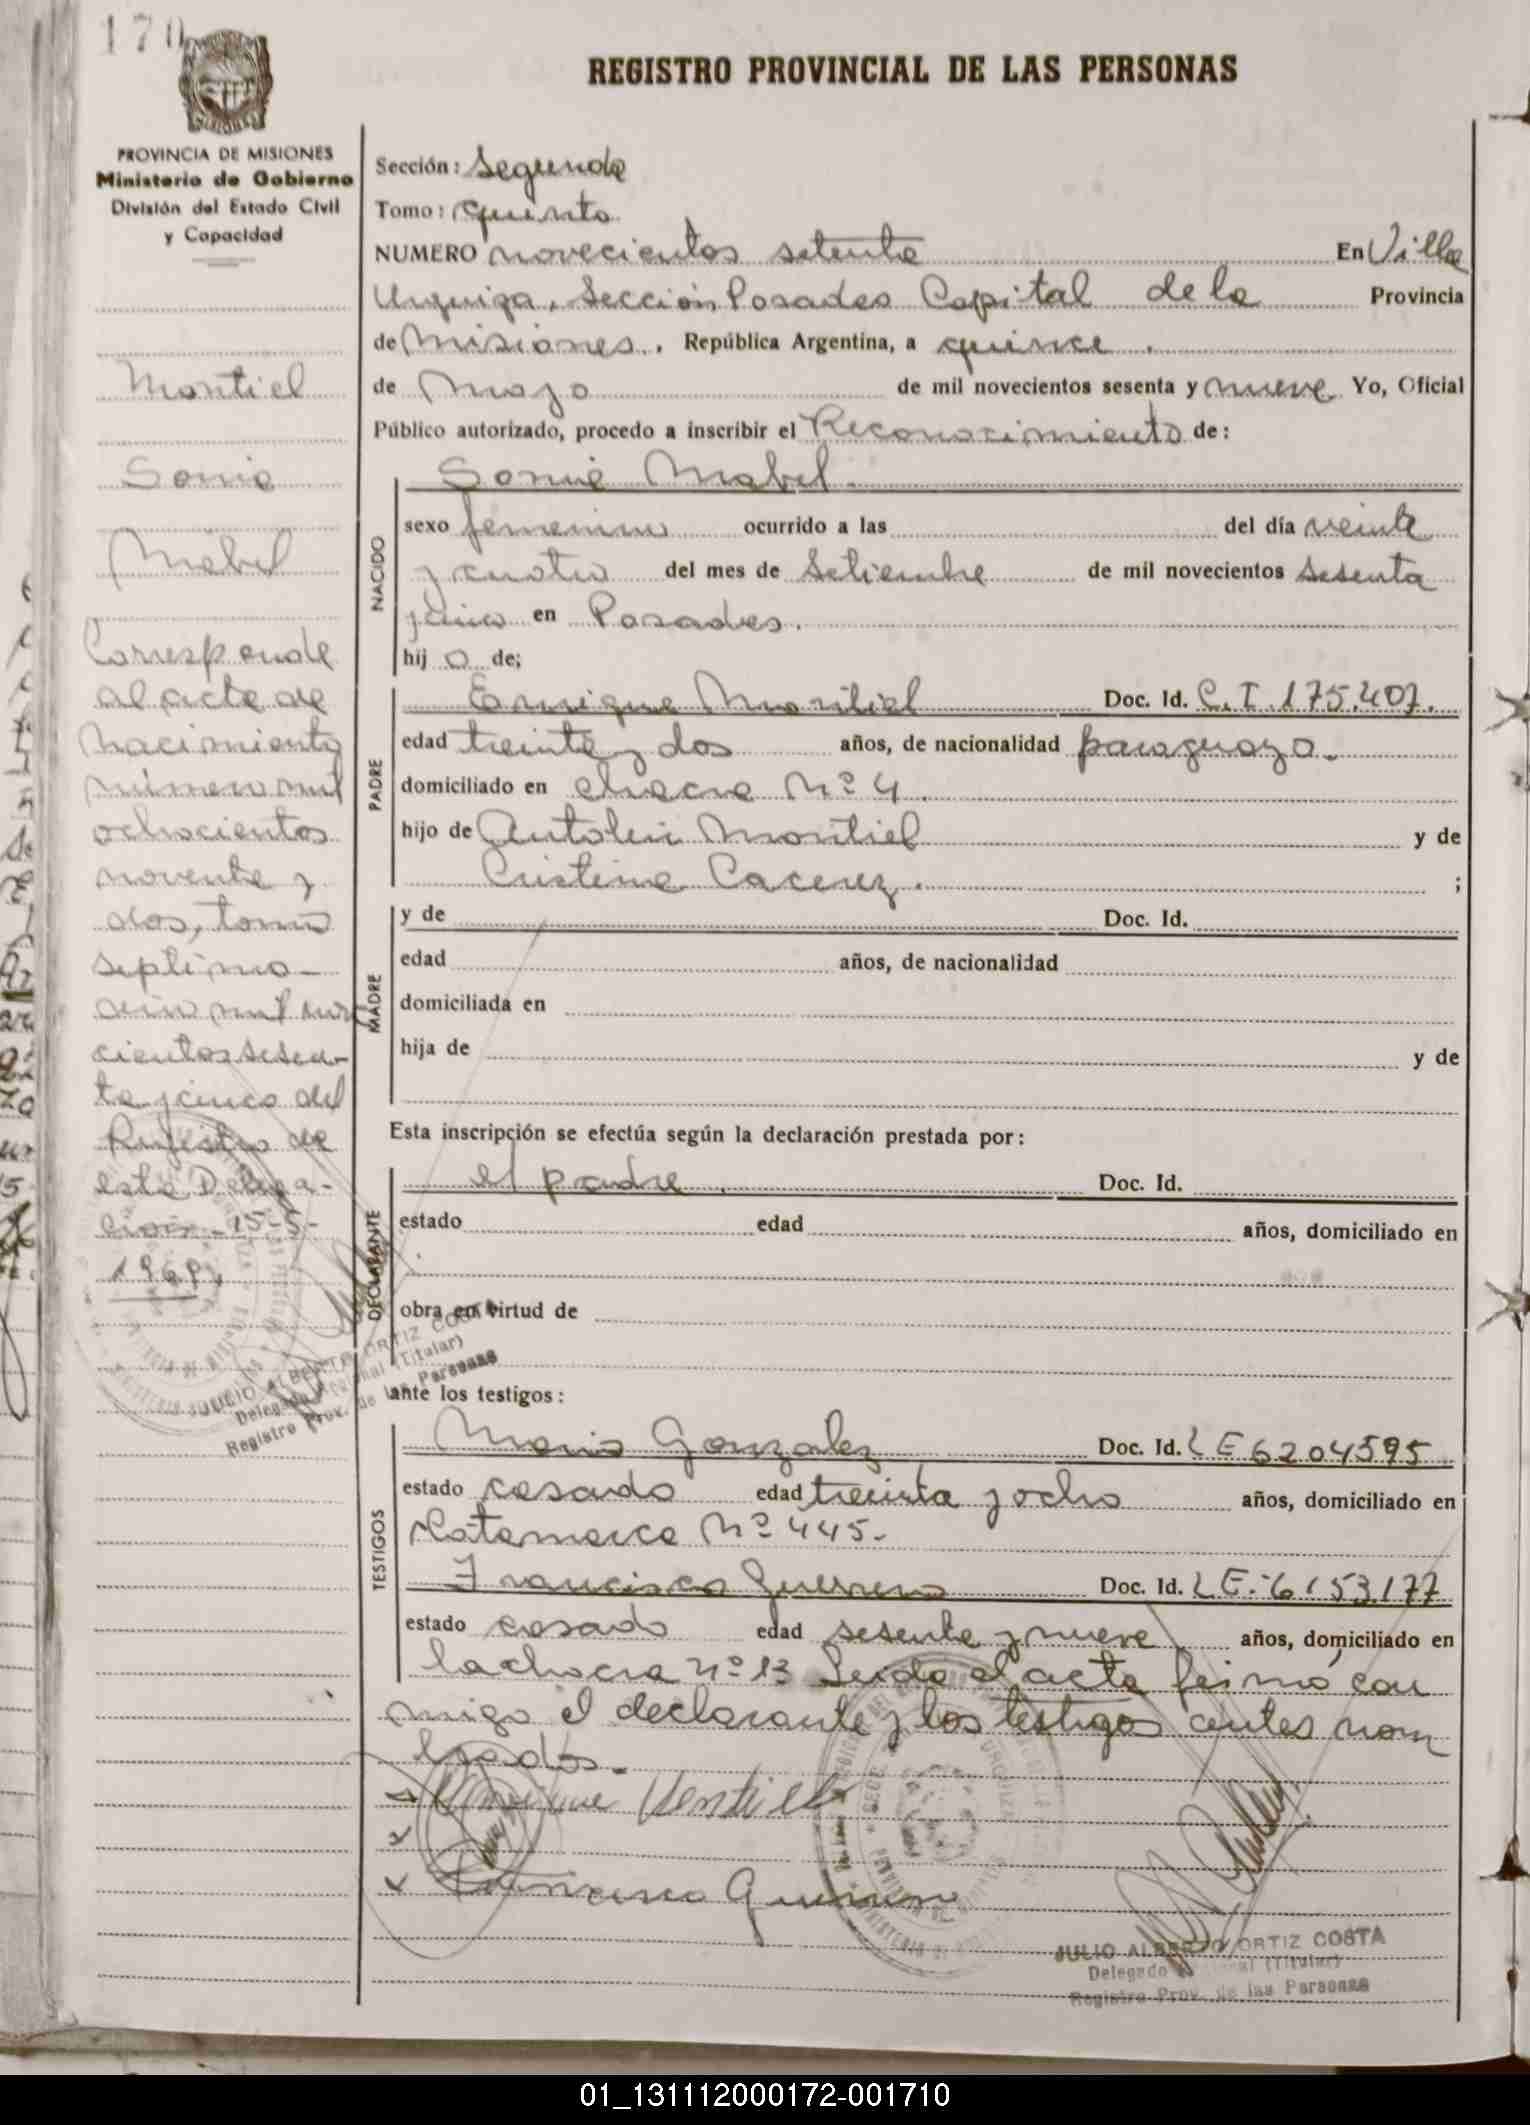 170
REGISTRO PROVINCIAL DE LAS PERSONAS
PROVINCIA DE MISIONES
Ministerio de Gobierno
División del Estado Civil
y Capacidad
Montiel
Sonia
Mabel
Corresponde
al acta de
Nacimiento
número mil
ochocientos
noventa y
dos, tomo
septimo
cientos sesen-
ta y cinco del
Registro de
esta Delega-
ción - 15-5-
1969.
Sección: Segunda
Tomo: quinto
NUMERO novecientos setenta En Villa
Urquiza, Sección Posadas Capital de la Provincia
de Misiones, República Argentina, a quince
de Mayo de mil novecientos sesenta y nueve Yo, Oficial
Público autorizado, procedo a inscribir el Reconocimiento de:
NACIDO
Sonia Mabel.
sexo femenino ocurrido a las del día veinte
y cuatro del mes de Setiembre de mil novecientos sesenta
y cinco en Posadas.
hij a de;
PADRE
Enrique Montiel Doc. Id. C.I. 175.407.
edad treinta y dos años, de nacionalidad paraguaya.-
domiciliado en chacra Nº 4.
hijo de Antolin Montiel y de
Cristina Cacerez. ;
MADRE
y de Doc. Id.
edad años, de nacionalidad
domiciliada en
hija de y de
Esta inscripción se efectúa según la declaración prestada por:
DECLARANTE
el padre. Doc. Id.
estado edad años, domiciliado en
obra en virtud de
JULIO ALBERTO ORTIZ COSTA
Delegado Regional (Titular)
Registro Prov. de las Personas
ante los testigos:
TESTIGOS
Mario Gonzalez Doc. Id. LE 6204595
estado casado edad treinta y ocho años, domiciliado en
Catamarca Nº 445.-
Francisco Guerrero Doc. Id. LE.-6153.177
estado casado edad sesenta y nueve años, domiciliado en
la chacra nº 13 Leida el acta firmó con
migo el declarante y los testigos antes nom
brados.-
x Enrique Montiel
x
x Francisco Guerrero
JULIO ALBERTO ORTIZ COSTA
Delegado Regional (Titular)
Registro Prov. de las Personas
01_131112000172-001710